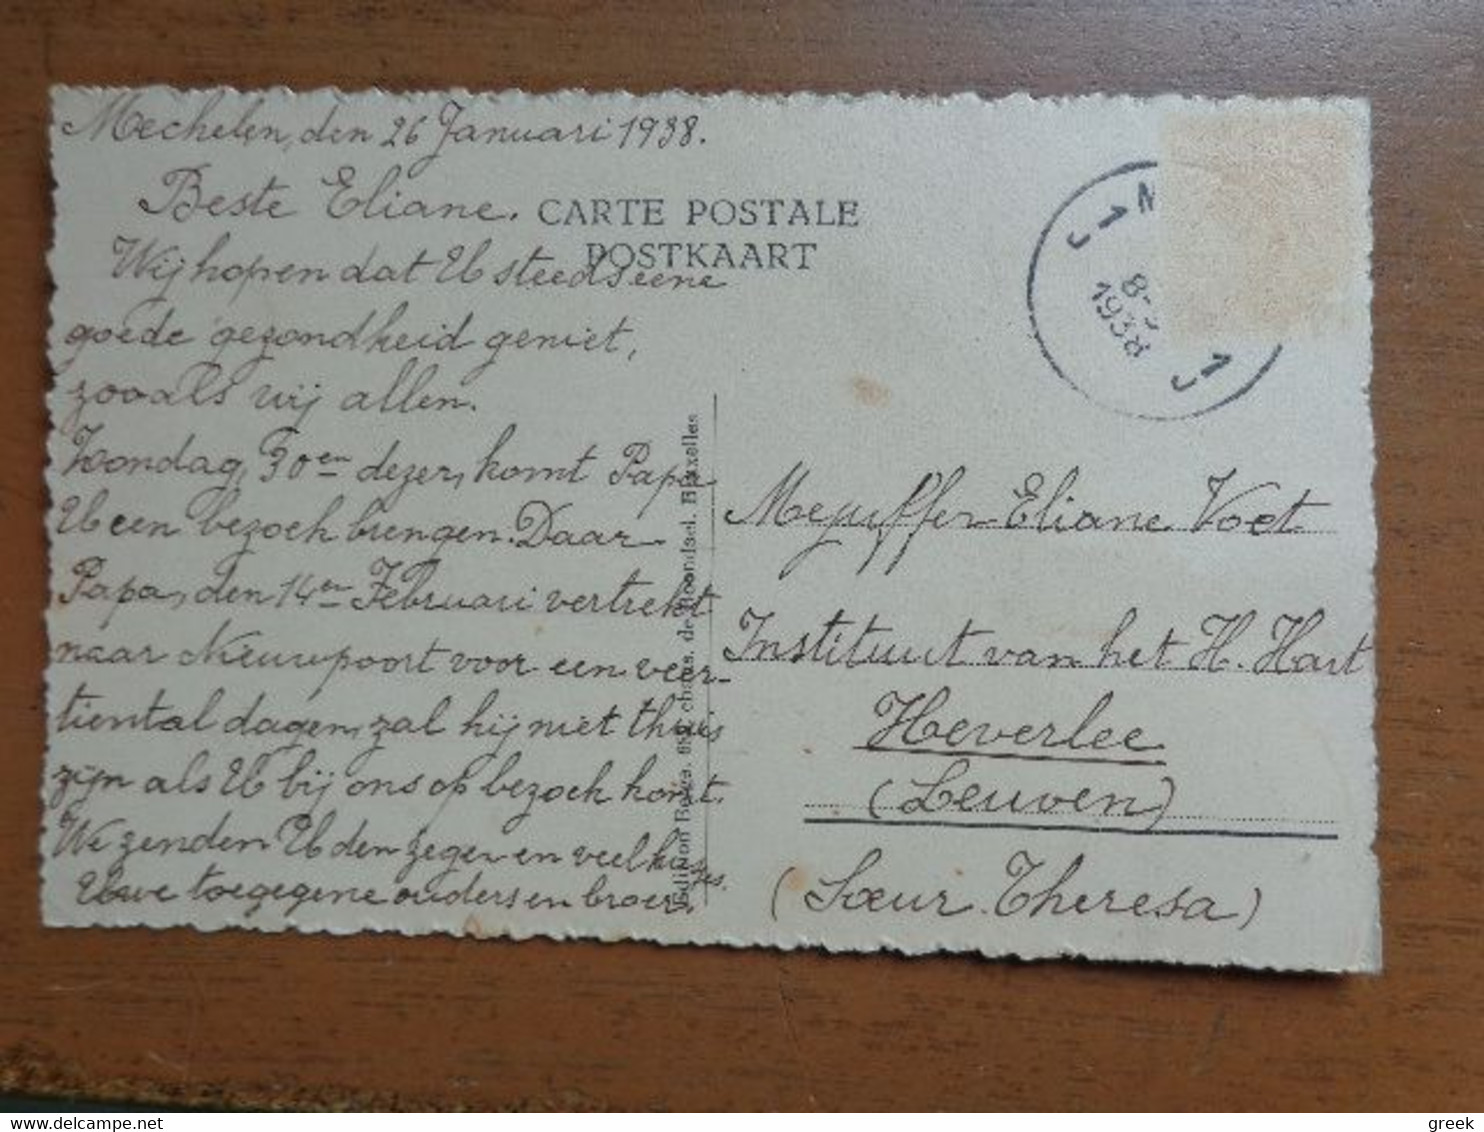 Mechelen, den 26 Januari 1938.
Beste Eliane.
CARTE POSTALE
POSTKAART
Wij hopen dat U steeds eene
goede gezondheid geniet,
zooals wij allen.
Zondag, 30en dezer, komt Papa
U een bezoek brengen. Daar
Papa, den 14en Februari vertrekt
naar Nieuwpoort voor een veer-
tiental dagen, zal hij niet thuis
zijn als U bij ons op bezoek komt.
We zenden U den zegen en veel kusjes.
Uwe toegegene ouders en broer.
Edition Belge, chauss. de Bruxelles
1 1
8-
1938
Mejuffer Eliane Voet
Instituut van het H. Hart
Heverlee
(Leuven)
(Sœur Theresa)
greek